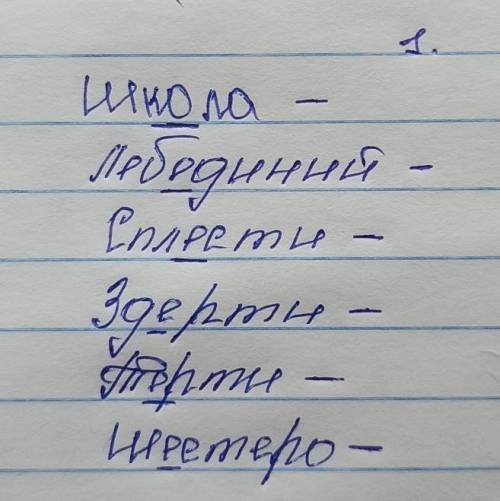 1.
Школа –
Лебединий –
Сплести –
Здерти –
Терти –
Шестеро –